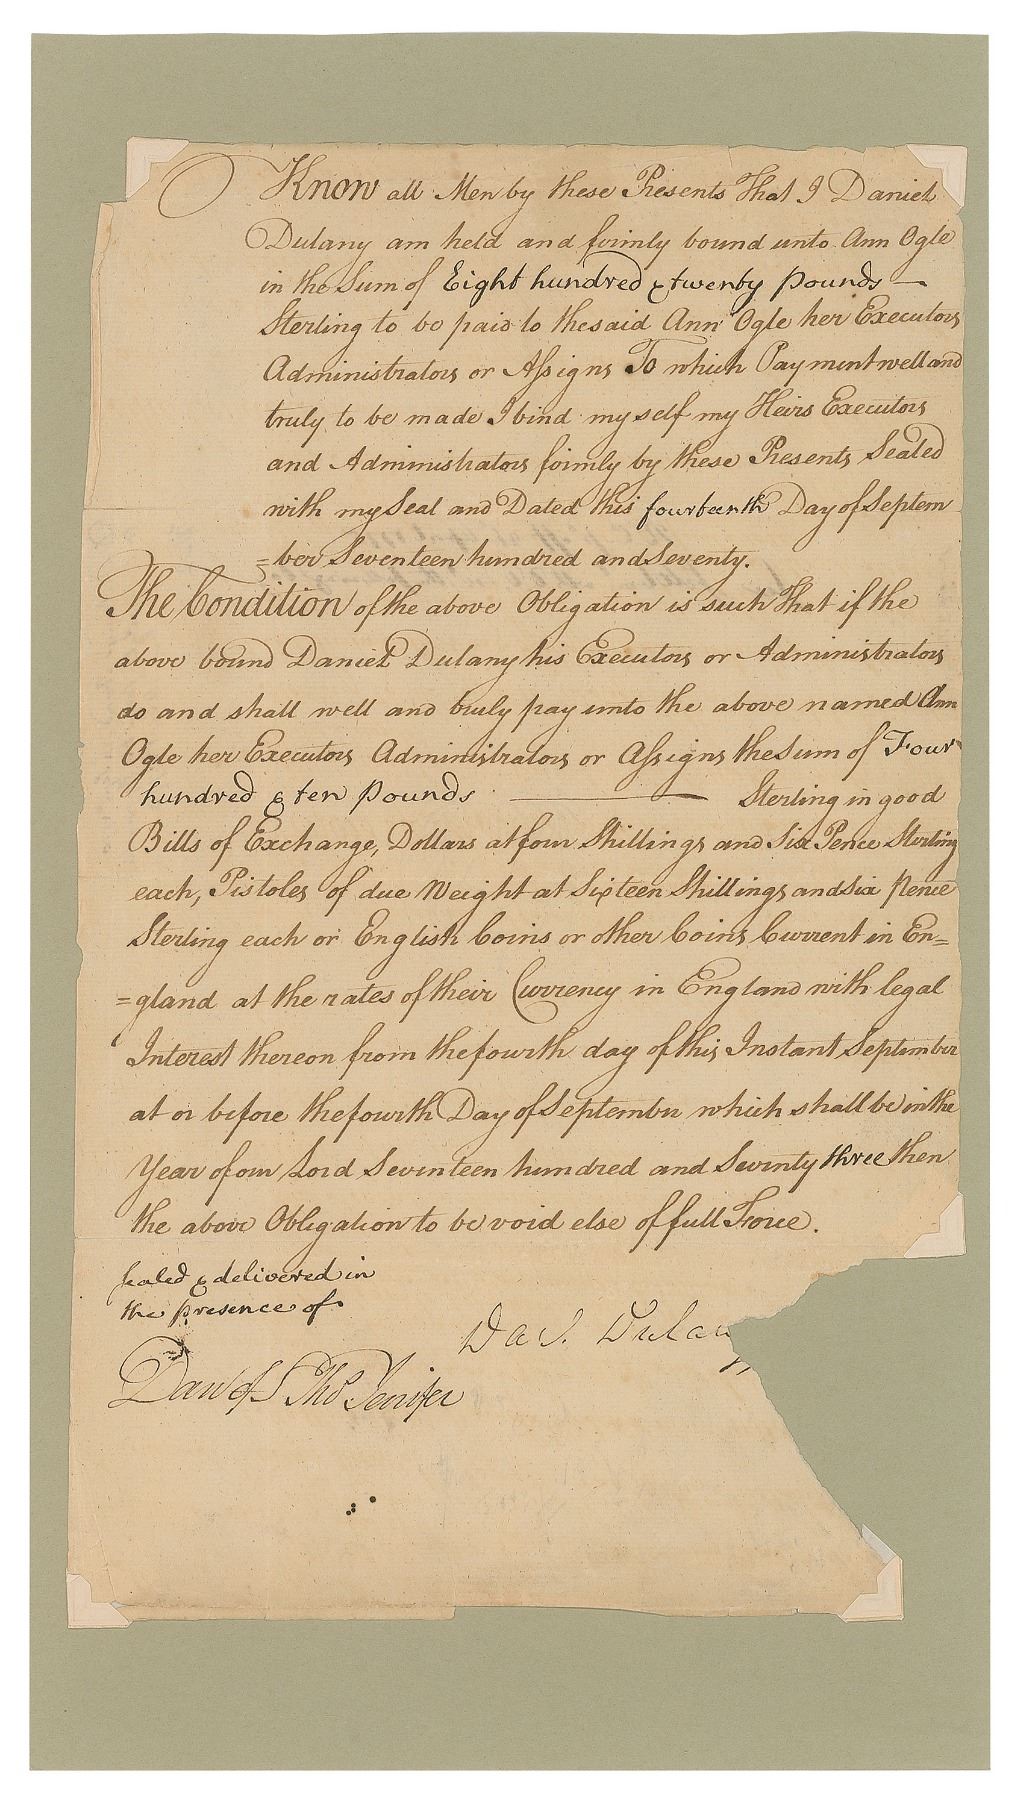 Know all Men by these Presents That I Daniel
Dulany am held and firmly bound unto Ann Ogle
in the Sum of Eight hundred & twenty pounds —
Sterling to be paid to the said Ann Ogle her Executors
Administrators or Assigns To which Payment well and
truly to be made I bind my self my Heirs Executors
and Administrators firmly by these Presents Sealed
with my Seal and Dated this fourteenth Day of Septem
=ber Seventeen hundred and Seventy.
The Condition of the above Obligation is such That if the
above bound Daniel Dulany his Executors or Administrators
do and shall well and truly pay unto the above named Ann
Ogle her Executors Administrators or Assigns the Sum of Four
hundred & ten pounds ——— Sterling in good
Bills of Exchange, Dollars at four Shillings and Six Pence Sterling
each, Pistoles of due Weight at Sixteen Shillings and Six pence
Sterling each or English Coins or other Coins Current in En=
=gland at the rates of their Currency in England with legal
Interest thereon from the fourth day of this Instant September
at or before the fourth Day of September which shall be in the
Year of our Lord Seventeen hundred and Seventy three then
the above Obligation to be void else of full Force.
Sealed & delivered in
the presence of
Dal. Dulany
Dan of St Thos Jenifer